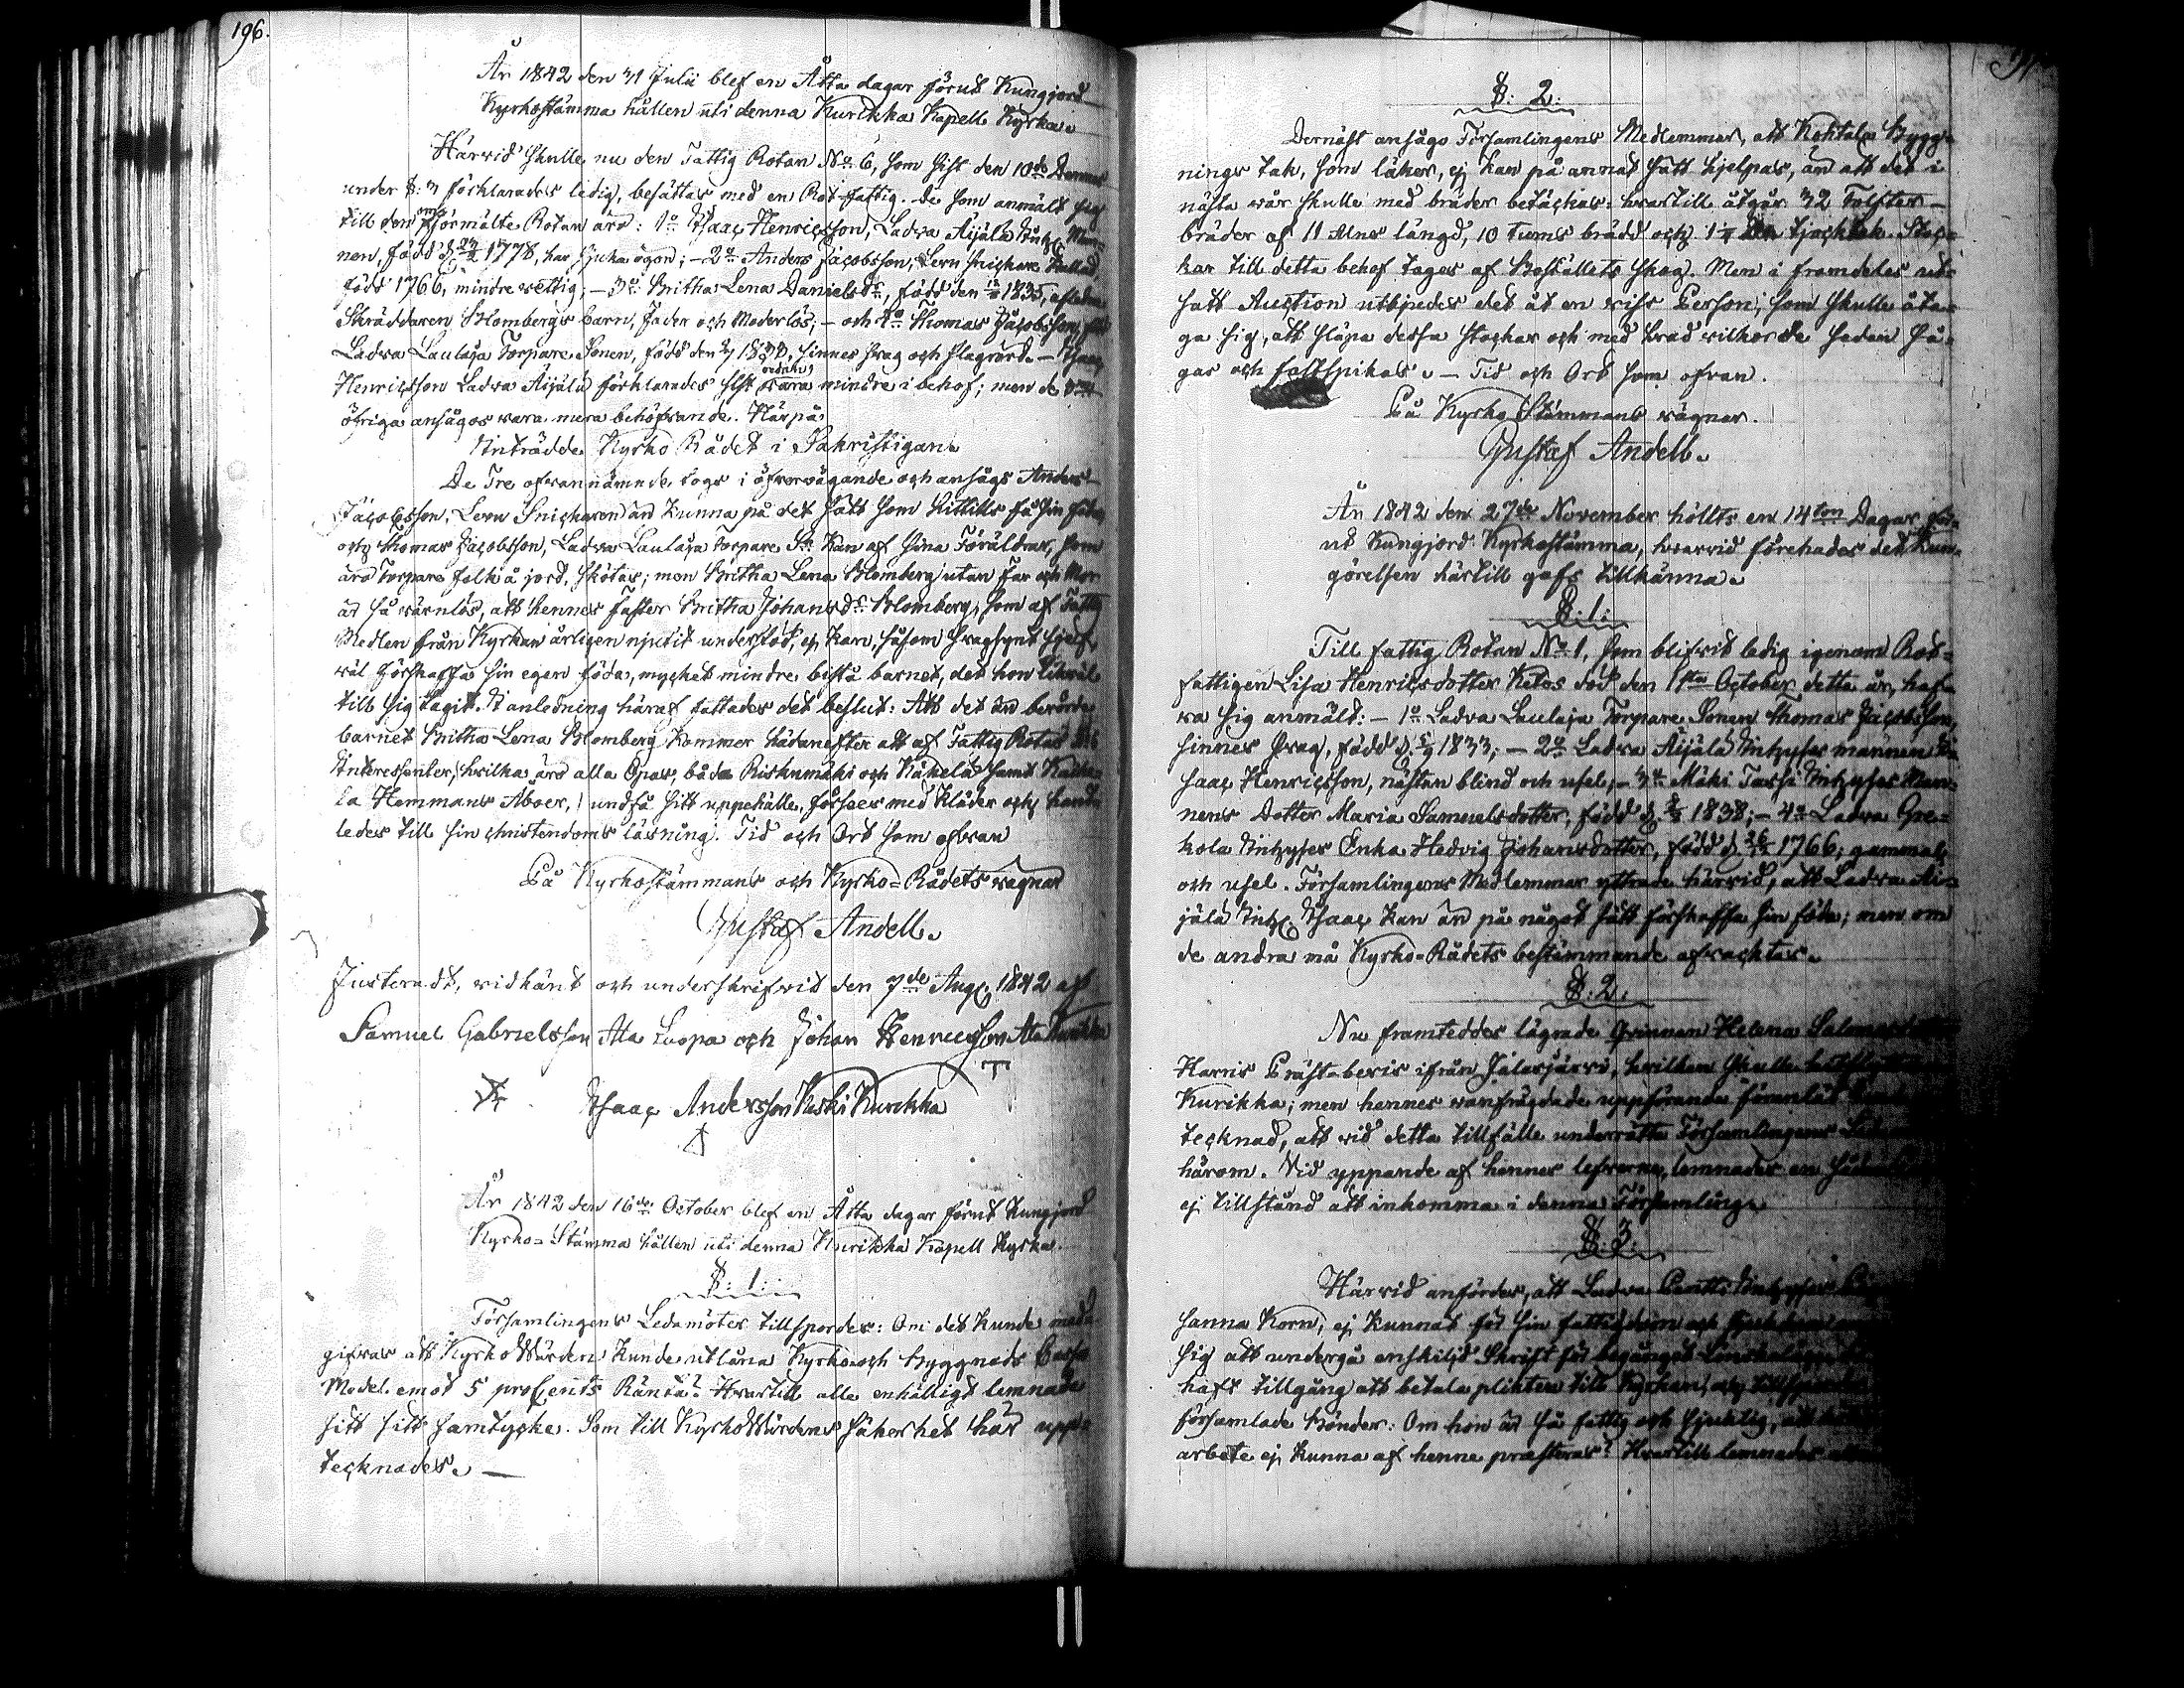 196.
År 1842 den 31 Julii blef en Åtta dagar förut Kungjord
Kyrkostämma hållen uti denna Kurikka Kapell Kyrka.
Härvid skulle nu den Fattig Rotan No 6, som sist den 10de
under §: 3 förklarades ledig, besättas med en Rot-fattig. De som anmält sig
till den omförmälte Rotan äro: 1o Isaac Henricsson, Ladva Äijälä
nen, född d. 1778, har sjuka ögon; – 2o Anders Jacobsson, Levu Snickare kallad,
född 1766, mindre vettig; – 3o Britha Lena Danielsdr, född den 1835, aflidne
Skräddaren Blombergs barn, Fader och Moderlös; – och 4o Thomas Jacobsson,
Ladva Laulaja Torpare Sonen, född den 1833, sinnes svag och ofärdig. – Isaac
Henricsson Ladva Äijälä förklarades sist vara mindre i behof; men de
öfriga ansågos vara mera behöfvande. Härpå
Inträdde Kyrko Rådet i Sakristigan.
De Tre ofvannämnde togs i öfvervägande och ansågs Anders
Jacobsson, Levu Snickaren än kunna på det sätt som hittills få sin föda
och Thomas Jacobsson, Ladva Laulaja Torpare Sn kan af sina Föräldrar, som
äro Torpare folk å jord, skötas; men Britha Lena Blomberg utan Far och Mor
är så värnlös, att hennes Faster Britha Johansdr Blomberg, som af Fattig
Medlen från Kyrkan årligen njutit understöd, ej kan, såsom svagsynt sjelf,
väl förskaffa sin egen föda, mycket mindre bistå barnet, det hon likväl
till sig tagit. I anledning häraf fattades det beslut: Att det än berörde
barnet Britha Lena Blomberg kommer hädanefter att af Fattig Rotas No 6
Interessenter, hvilka äro alla Opas, båda Riskumäki och Käkelä samt
la Hemmans Åboer, undfå sitt uppehälle, förses med kläder och hand
ledes till sin christendoms läsning. Tid och Ort som ofvan
På Kyrkostämmans och Kyrko-Rådets vägnar
Gustaf Andell.
Justeradt, vidkänt och underskrifvit den 7de Aug. 1842 af
Samuel Gabrielsson Ala Luopa och Johan Henricsson Ala
Isaac Andersson Keski Kurikka
År 1842 den 16de October blef en Åtta dagar förut Kungjord
Kyrko-Stämma hållen uti denna Kurikka Kapell Kyrka.
§: 1:
Församlingens Ledamöter tillspordes: Om det kunde med
gifvas att Kyrko Wärden kunde utlåna Kyrko och byggnads Cassa
Medel emot 5 procents Ränta? Hvartill alla enhälligt lemnade
sitt sitt samtycke. Som till Kyrko Wärdens säkerhet här upp-
tecknades. –
§: 2:
Dernäst ansågo Församlingens Medlemmar, att Kohtala Bygg-
nings tak, som läker, ej kan på annat sätt hjelpas, än att det i
nästa vår skulle med bräder betäckas: hvartill åtgår 32 Tolfter
bräder af 11 Alns längd, 10 Tums brädd och tjocklek. Stoc-
kar till detta behof tages af Boställets skog. Men i framdeles ut-
satt Auction utbjudes det åt en viss Person, som skulle åta-
ga sig, att släpa dessa stockar och med hvad vilkor de sedan så-
gas och fastspikas. – Tid och Ort som ofvan.
På Kyrko Stämmans vägnar.
Gustaf Andell.
År 1842 den 27de November hölts en 14ton Dagar för-
ut Kungjord Kyrkostämma, hvarvid förehades det Kun-
görelsen härtill gafs tillkänna.
§: 1:
Till fattig Rotan No 1, som blifvit ledig igenom Rot-
fattigen Lisa Henricsdotter Ketos död den 1sta October detta år, haf-
va sig anmält: – 1o Ladva Laulaja Torpare Sonen Thomas Jacobsson,
sinnes svag, född d. 1833; – 2o Ladva Äijälä Inhyses mannen I-
saac Henricsson, nästan blind och usel; – 3o Mäki Tassi Inhyses Man-
nens Dotter Maria Samuelsdotter, född d. 1838; – 4o Ladva Gre-
kola Inhyses Enka Hedvig Johansdotter, född d. 1766, gammal
och usel. Församlingens Medlemmar yttrade härvid, att Ladva Äi-
jälä Inh. Isaac kan än på något sätt förskaffa sin föda; men om
de andra må Kyrko-Rådets bestämmande afvacktas.
§: 2.
Nu framteddes lägrade Qvinnan Helena
Harris Prästa-bevis ifrån Jalasjärvi, hvilken skulle
Kurikka; men hennes vanfrägdade uppförande föranlät
tecknad, att vid detta tillfälle underrätta Församlingens
härom. Vid yppande af hennes lefverne, lemnades en sådan
ej tillstånd att inkomma i denna Församling.
§: 3:
Härvid anfördes, att Ladva Pentti Inhyses
Sanna Korn, ej kunnat för sin fattigdom och
sig att undergå enskild Skrift för begånget
haft tillgång att betala plikten till Kyrkan, och
församlade bönder: Om hon är så fattig och sjuklig, att
arbete ej kunna af henne præsteras? Hvartill lemnades